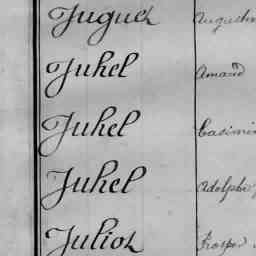 Juguet Augustin
Juhel Amand
Juhel Casimir
Juhel Adolphe
Juliot Prosper